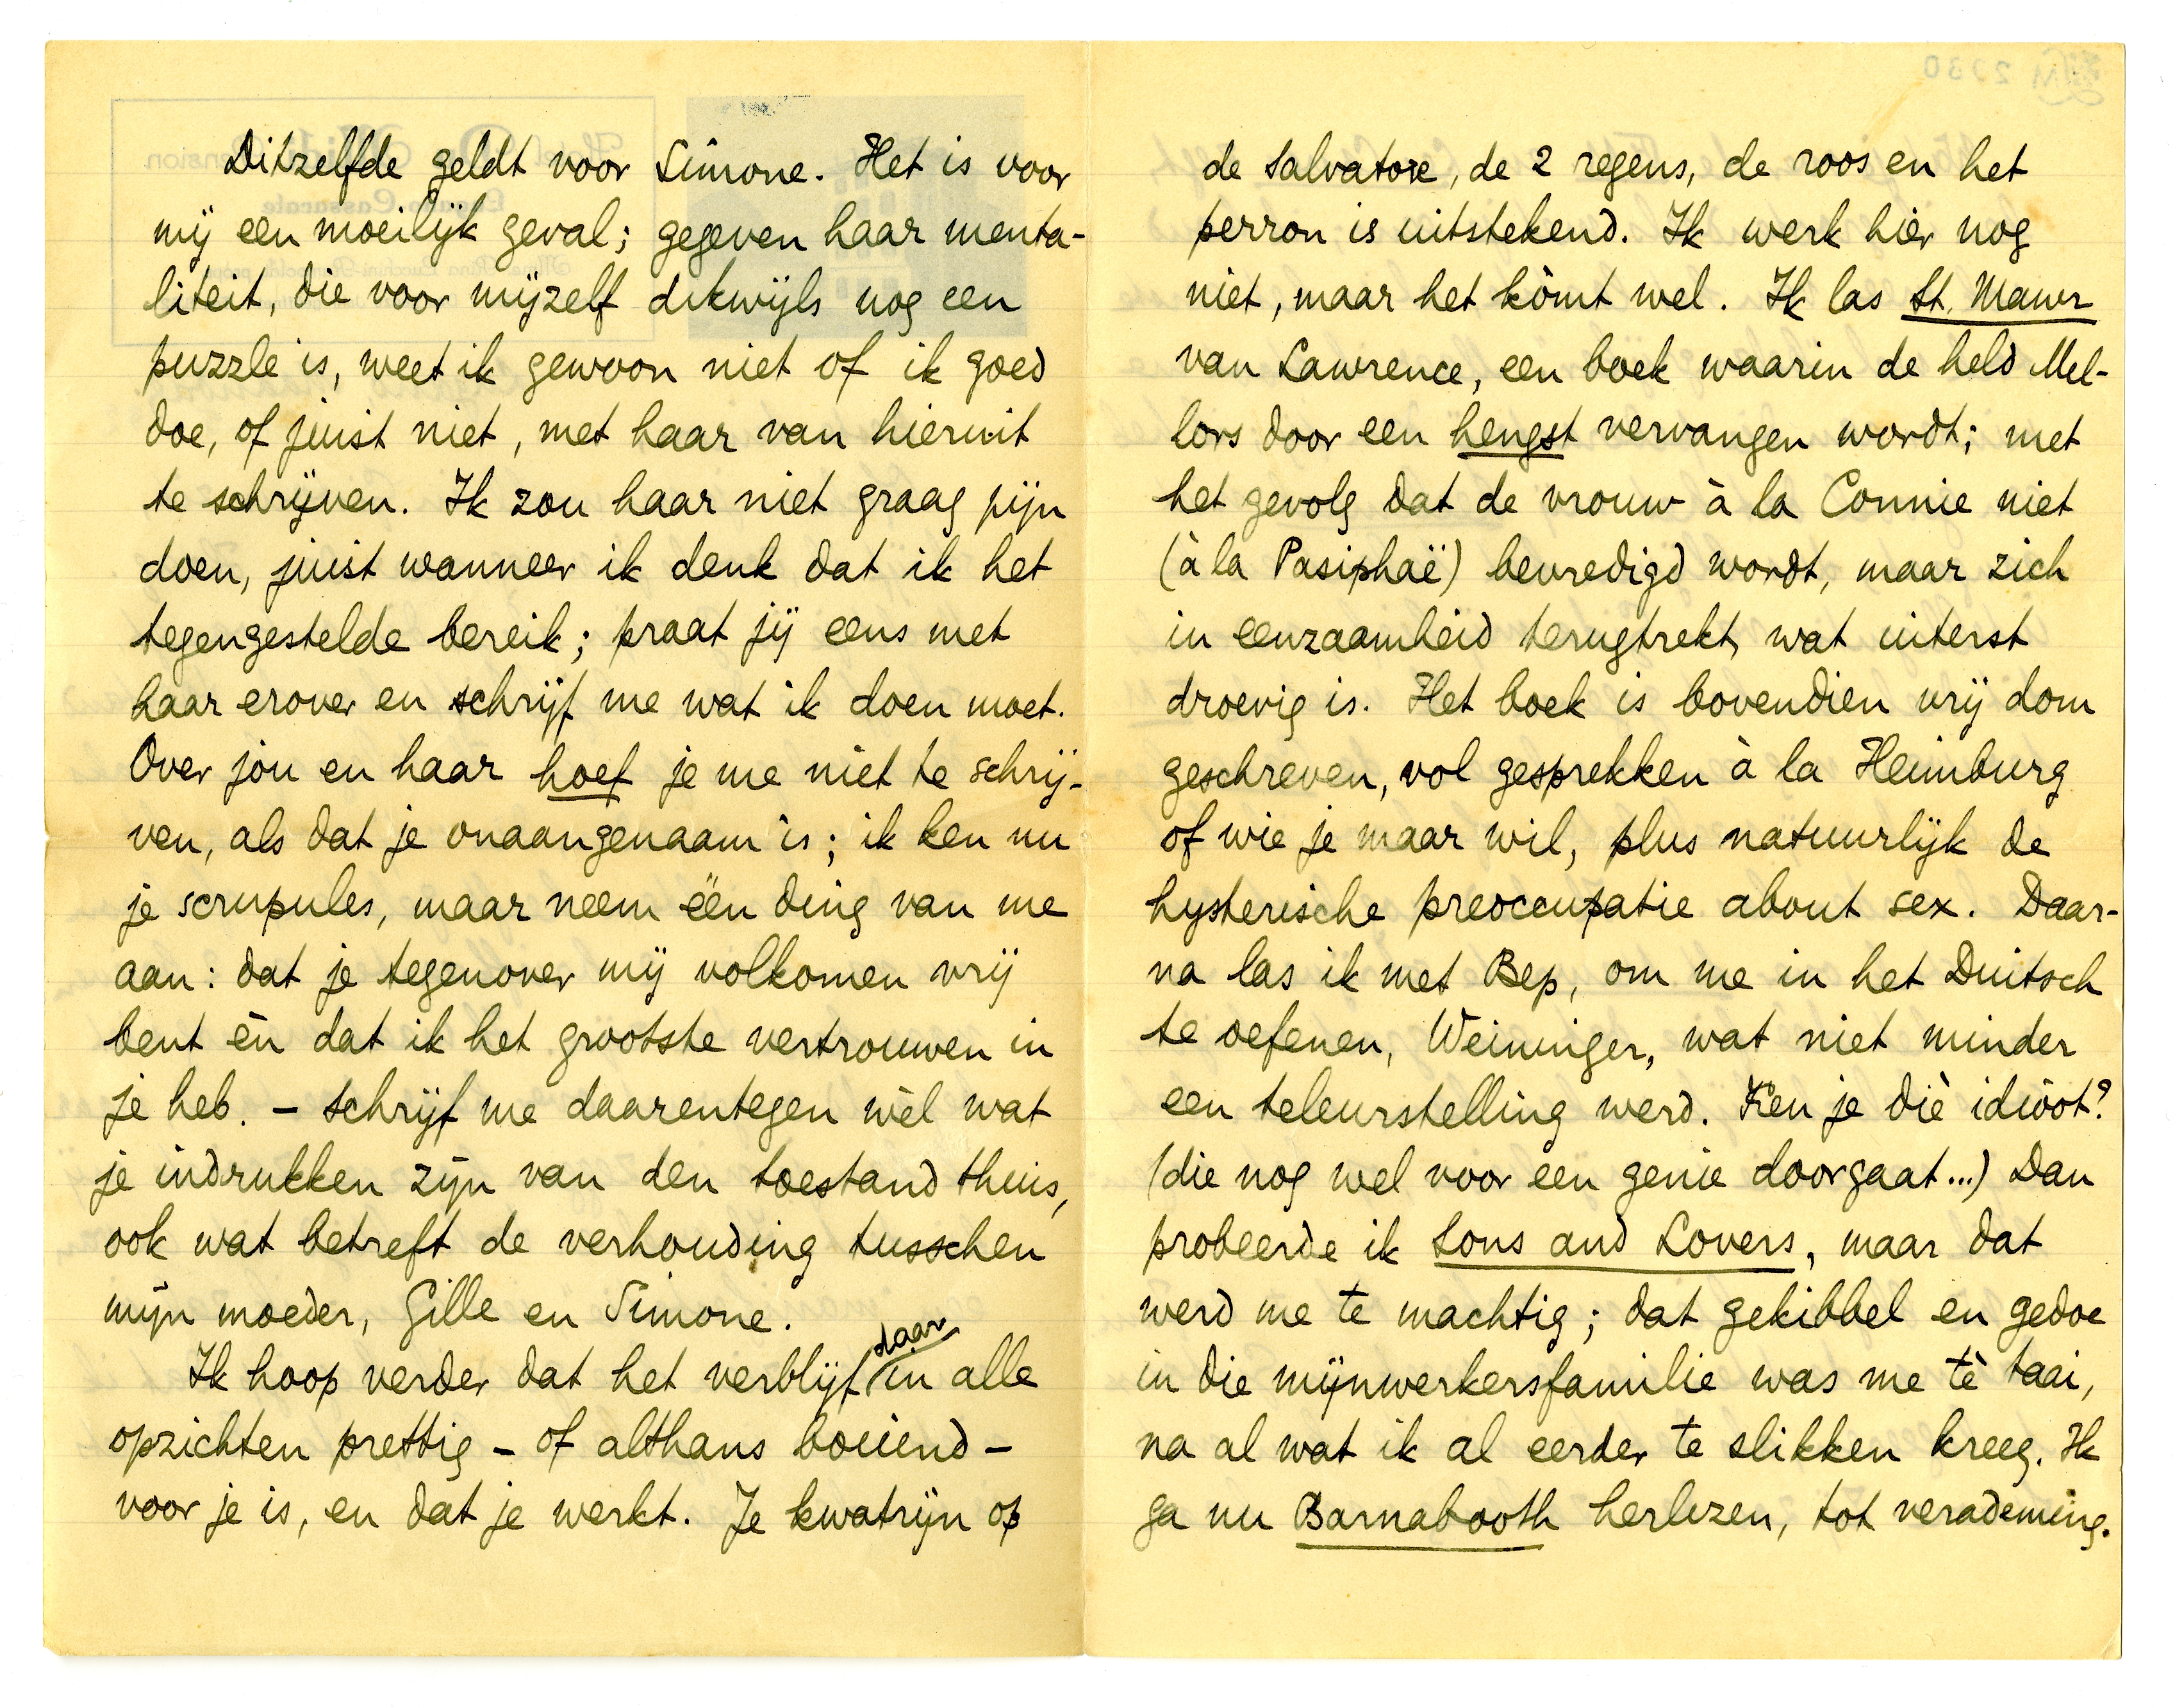 Ditzelfde geldt voor Simone. Het is voor
mij een moeilijk geval; gegeven haar menta-
liteit, die voor mijzelf dikwijls nog een
puzzle is, weet ik gewoon niet of ik goed
doe, of juist niet, met haar van hieruit
te schrijven. Ik zou haar niet graag pijn
doen, juist wanneer ik denk dat ik het
tegengestelde bereik; praat jij eens met
haar erover en schrijf me wat ik doen moet.
Over jóu en haar hoef je me niet te schrij-
ven, als dat je onaangenaam is; ik ken nu
je scrupules, maar neem één ding van me
aan: dat je tegenover mij volkomen vrij
bent èn dat ik het grootste vertrouwen in
je heb. – Schrijf me daarentegen wèl wat
je indrukken zijn van den toestand thuis,
ook wat betreft de verhouding tusschen
mijn moeder, Gille en Simone.
Ik hoop verder dat het verblijf daar in alle
opzichten prettig – of althans boeiend –
voor je is, en dat je werkt. Je kwatrijn op
de Salvatore, de 2 regens, de roos en het
perron is uitstekend. Ik werk hier nog
niet, maar het kòmt wel. Ik las St. Mawr
van Lawrence, een boek waarin de held Mel-
lors door een hengst vervangen wordt; met
het gevolg dat de vrouw à la Connie niet
(à la Pasiphaë) bevredigd wordt, maar zich
in eenzaamheid terugtrekt, wat uiterst
droevig is. Het boek is bovendien vrij dom
geschreven, vol gesprekken à la Heimburg
of wie je maar wil, plus natuurlijk de
hysterische preoccupatie about sex. Daar-
na las ik met Bep, om me in het Duitsch
te oefenen, Weininger, wat niet minder
een teleurstelling werd. Ken je dìe idioot?
(die nog wel voor een genie doorgaat...) Dan
probeerde ik Sons and Lovers, maar dat
werd me te machtig; dat gekibbel en gedoe
in die mijnwerkersfamilie was me tè taai,
na al wat ik al eerder te slikken kreeg. Ik
ga nu Barnabooth herlezen, tot verademing.